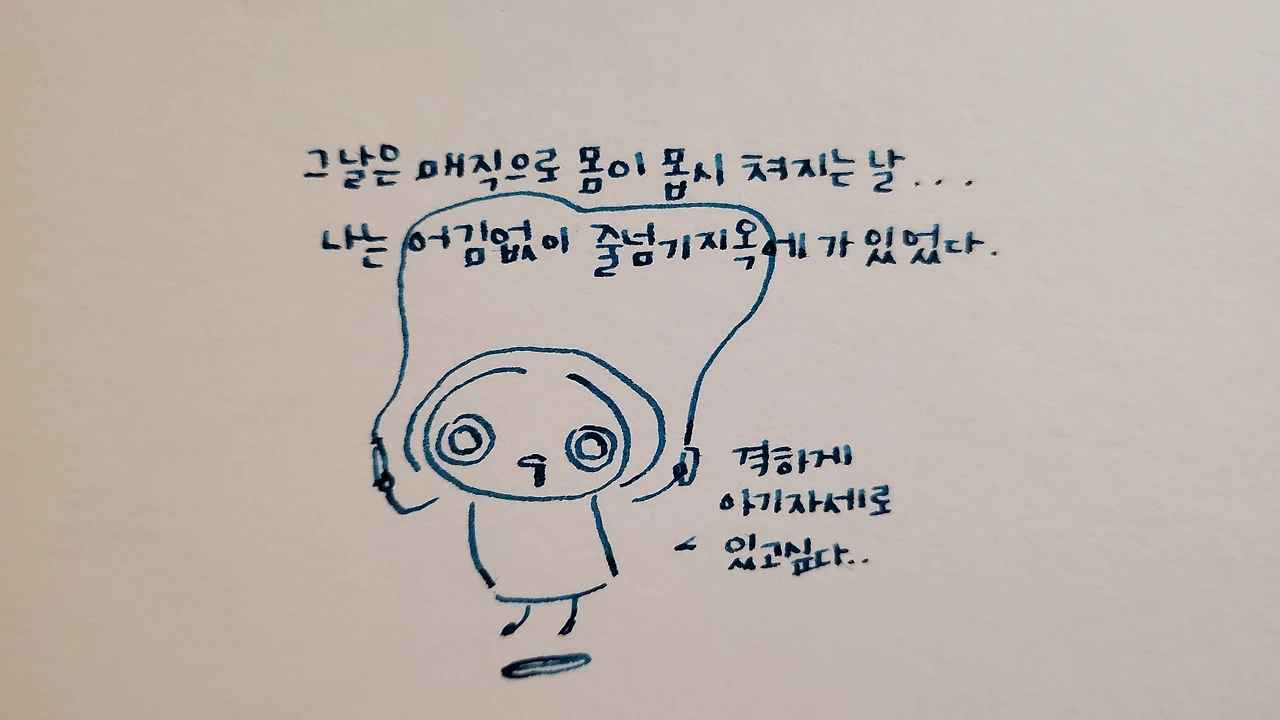 그날은 매직으로 몸이 몹시 쳐지는 날...
나는 어김없이 줄넘기지옥에 가 있었다.
격하게
아기자세로
있고싶다..